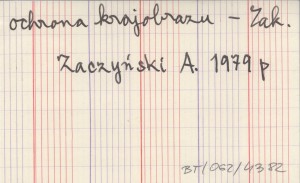 ochrona krajobrazu - Zak.
Zaczyński A. 1979 p
BT/062/4382